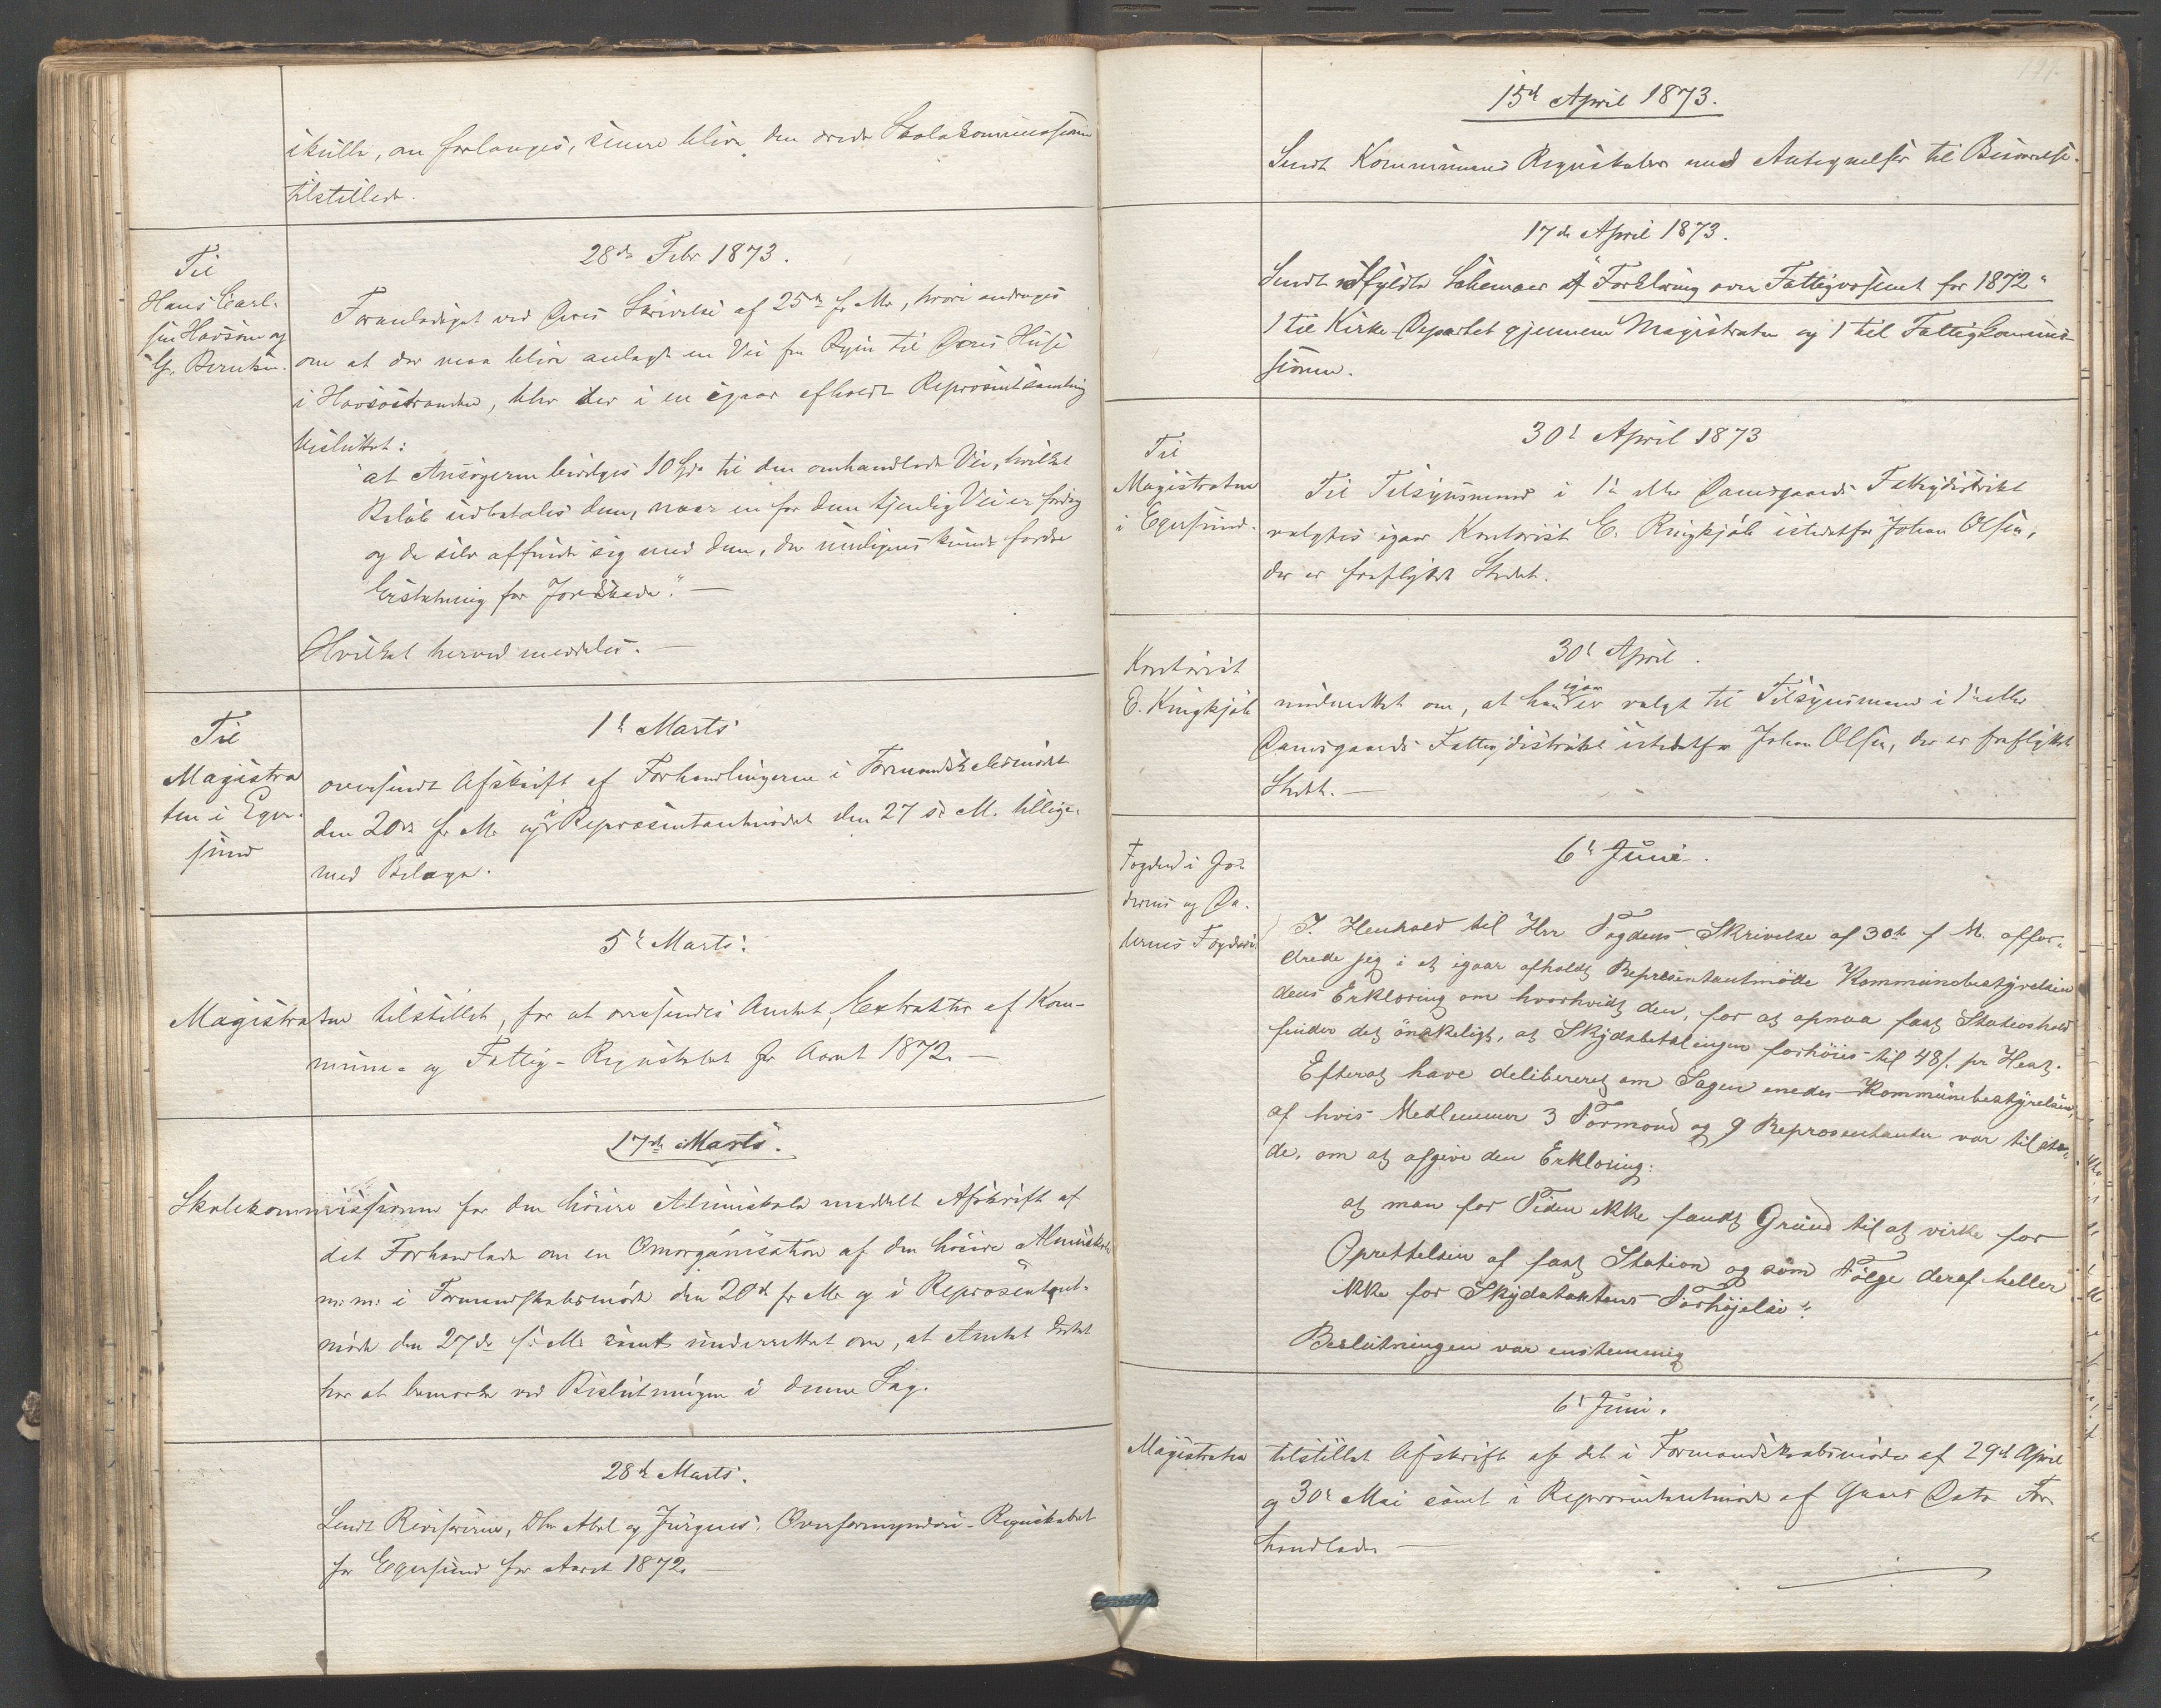 skulle, om forlanges, senere blive den ærede Skolekommission
tilstillet.
28de Febr 1873.
Til
Hans Carl-
sen Havsøen og
G. Berntsen.
Foranlediget ved Deres Skrivelse af 25de f. M., hvori androges
om at der maa blive anlagt en Vei fra Byen til Deres Huse
i Havsøstranden, blev der i en igaar afholdt Repræsentsamling
besluttet:
"at Ansøgerne bevilges 10 Spd. til den omhandlede Vei, hvilket
Beløb udbetales dem, naar en for dem tjenlig Vei er færdig
og de selv affinde sig med dem, der muligens kunde fordre
Erstatning for Jordskade". —
Hvilket herved meddeles. —
1ste Marts
Til
Magistra
ten i Eger-
sund
oversendt Afskrift af Forhandlingerne i Formandskabsmødet
den 20de f. M. og i Repræsentantmødet den 27 s. M. tillige-
med Bilage.
5te Marts.
Magistraten tilstillet, for at oversendes Amtet, Extrakter af Kom-
mune- og Fattig-Regnskabet for Aaret 1872. —
17de Marts.
Skolekommissionen for den høiere Almueskole meddelt Afskrift af
det Forhandlede om en Omorganisation af den høiere Almueskole
m. m. i Formandskabsmøde den 20de f. M. og i Repræsentant-
møde den 27de s. M. samt underrettet om, at Amtet Intet
har at bemærke ved Beslutningen i denne Sag.
28de Marts.
Sendt Revisorerne, Dhr Abel og Jürgens, Overformynderi-Regnskabet
for Egersund for Aaret 1872. —
15de April 1873.
Sendt Kommunens Regnskaber med Antegnelser til Besvarelse.
17de April 1873.
Sendt udfyldte Schemaer af "Forklaring over Fattigvæsenet for 1872"
1 til Kirke-Departet gjennem Magistraten og 1 til Fattigkommis-
sionen.
30te April 1873
Til
Magistraten
i Egersund.
Til Tilsynsmand i 1ste eller Damsgaards Fattigdistrikt
valgtes igaar Kontorist E. Ringkjøb istedetfor Johan Olsen,
der er fraflyttet Stedet.
30te April.
Kontorist
E. Ringkjøb
underrettet om, at han igaar er valgt til Tilsynsmand i 1ste eller
Damsgaards Fattigdistrikt istedetfor Johan Olsen, der er fraflyttet
Stedet. —
6te Juni.
Fogden i Jæ-
derens og Da-
lernes Fogderi.
I Henhold til Herr Fogdens Skrivelse af 30te f M. affor-
drede jeg i et igaar afholdt Repræsentantmøde Kommunebestyrelsen
dens Erklæring om hvorvidt den, for at opnaa fast Stationshold
finder det ønskeligt, at Skydsbetalingen forhøies til 48 s. pr Hest.
Efterat have delibereret om Sagen enedes Kommunebestyrelsen,
af hvis Medlemmer 3 Formænd og 9 Repræsentanter var tilstæ-
de, om at afgive den Erklæring:
at man for Tiden ikke fandt Grund til at virke for
Oprettelsen af fast Station og som Følge deraf heller
ikke for Skydstaxtens Forhøjelse".
Beslutningen var enstemmig
6te Juni.
Magistraten
tilstillet Afskrift af det i Formandskabsmøder af 29de April
og 30te Mai samt i Repræsentantmøde af Gaars Dato For-
handlede —